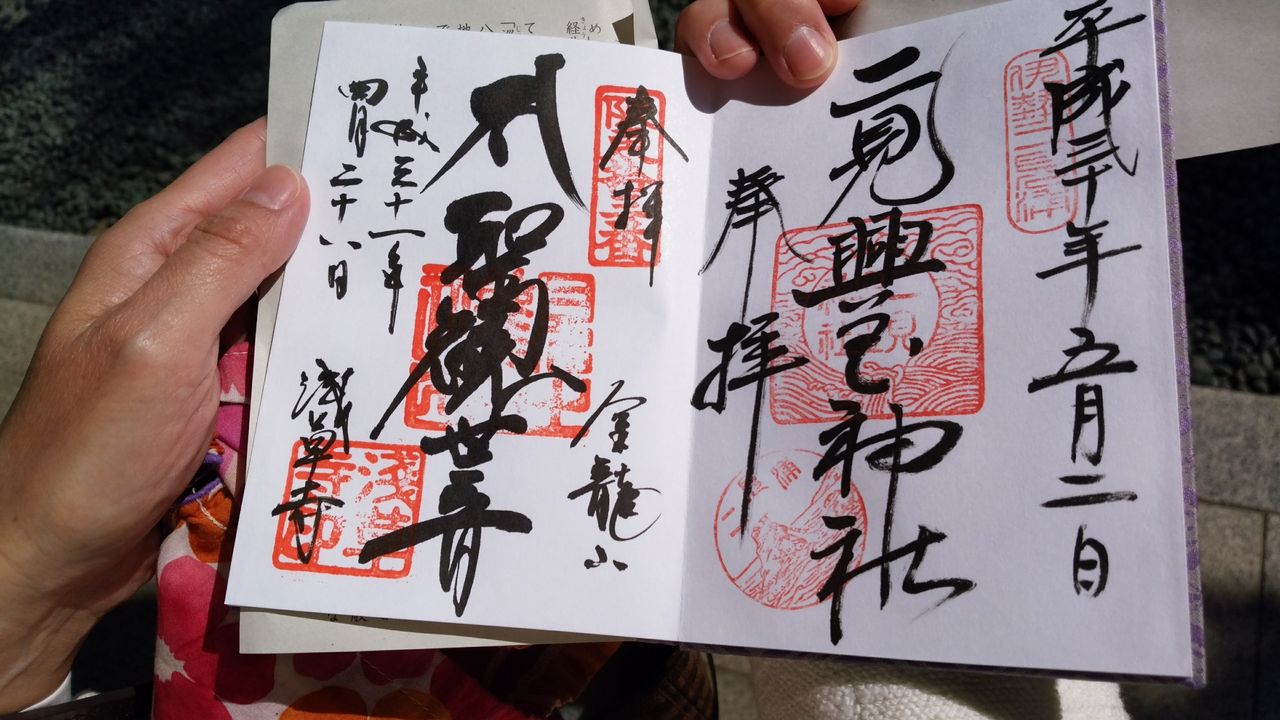 平成三十年五月二日
伊勢二見浦
二見興玉神社
奉拝
奉拝
坂東十三番
金龍山
聖観世音
平成三十一年
四月二十八日
浅草寺
浅草寺印